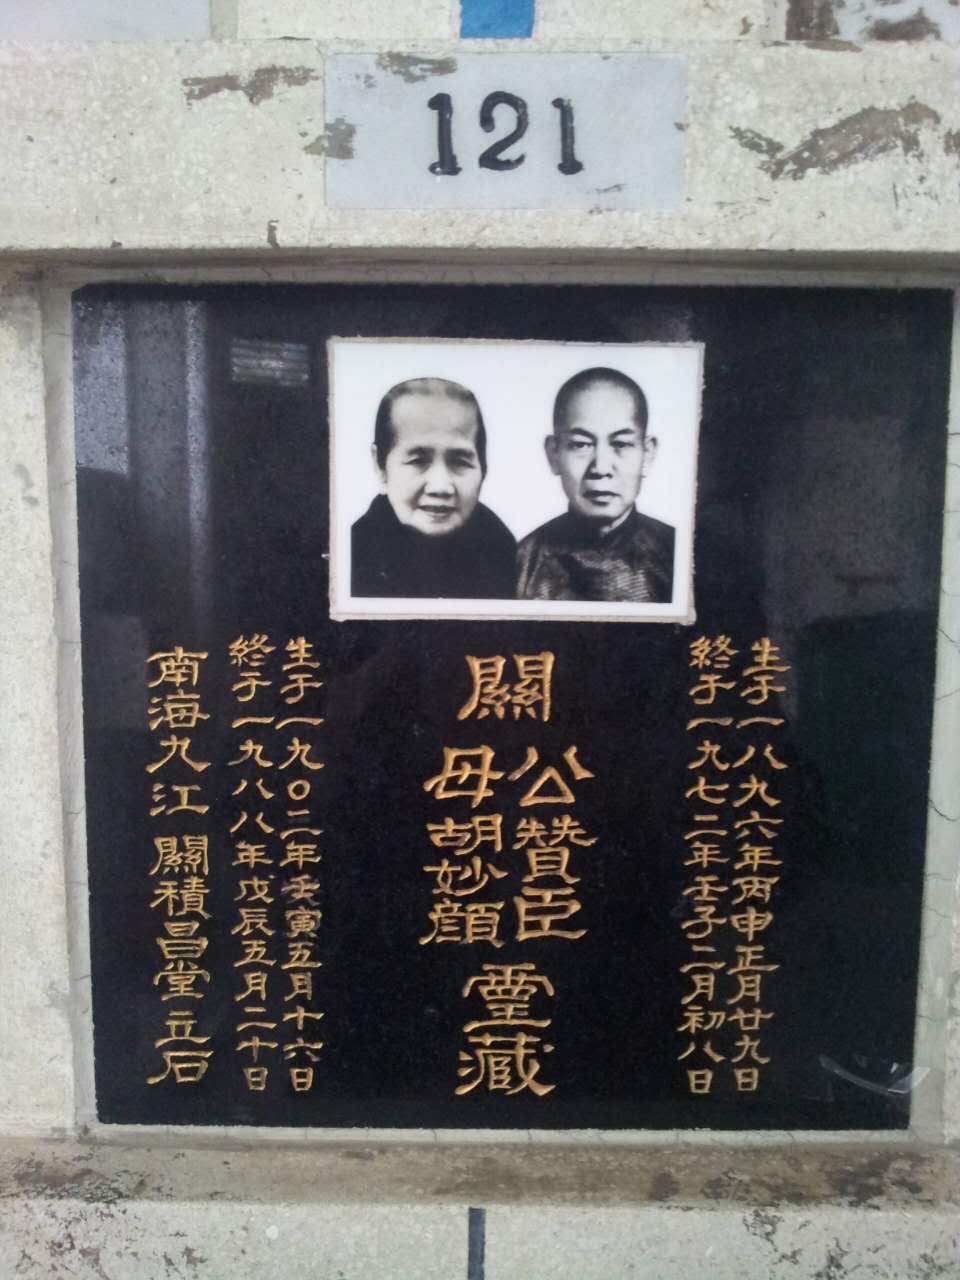 121
生于一八九六年丙申正月廿九日
終于一九七二年壬子二月初八日
關
公贊臣
母胡妙顏
靈藏
生于一九〇二年壬寅五月十六日
終于一九八八年戊辰五月二十日
南海九江 關積昌堂立石